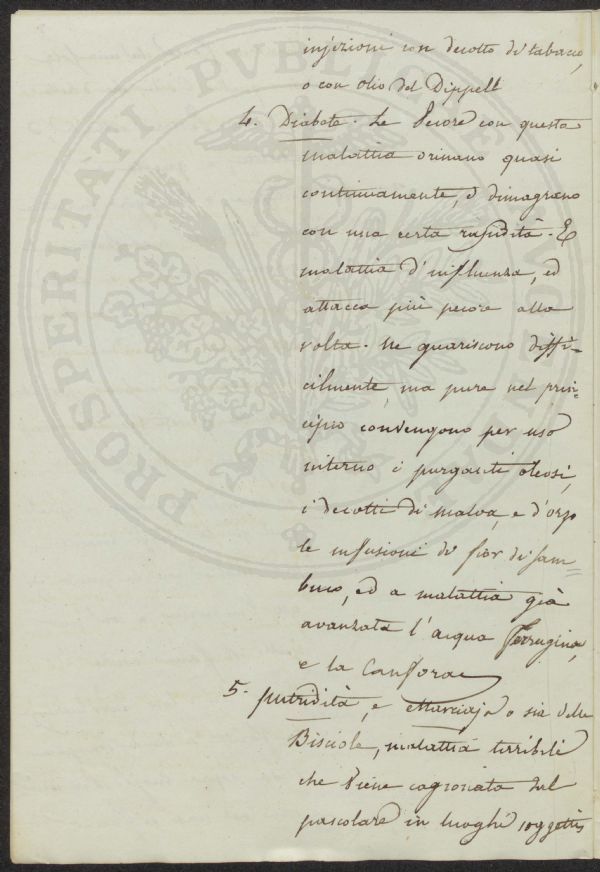 injezioni con decotto di tabacco,
o con olio del Dippell
4. Diabete. Le Pecore con questa
malattia orinano quasi
continuamente, e dimagrano
con una certa rapidità. È
malattia d'influenza, ed
attacca più pecore alla
volta. Ne guariscono diffi-
cilmente, ma pure nel prin=
cipio convengono per uso
interno i purganti oleosi,
i decotti di malva, e d'orzo
le infusioni di fior di sam=
buco, ed a malattia già
avanzata l'acqua ferrugina,
e la Canfora
5. Putridità, e Marciaja o sia delle
Bisciole, malattia terribile
che viene cagionata dal
pascolare in luoghi soggetti
PROSPERITATI PUBLICAE